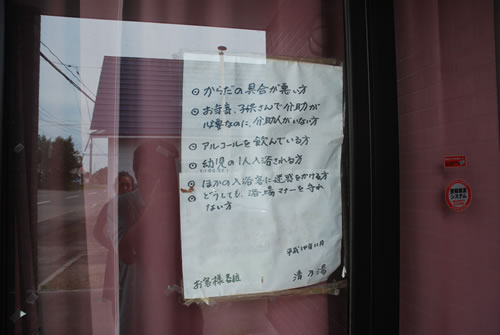 ◎ からだの具合が悪い方
◎ お年寄、子供さんで介助が
必要なのに、介助人がいない方
◎ アルコールを飲んでいる方
◎ 幼児の1人入浴される方
◎ ほかの入浴客に迷惑をかける方
◎ どうしても、浴場マナーを守れ
ない方
平成19年11月
お客様各位
清乃湯